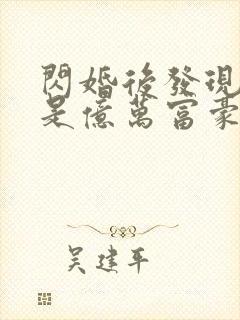 閃婚後發現
是億萬富豪
吴建平